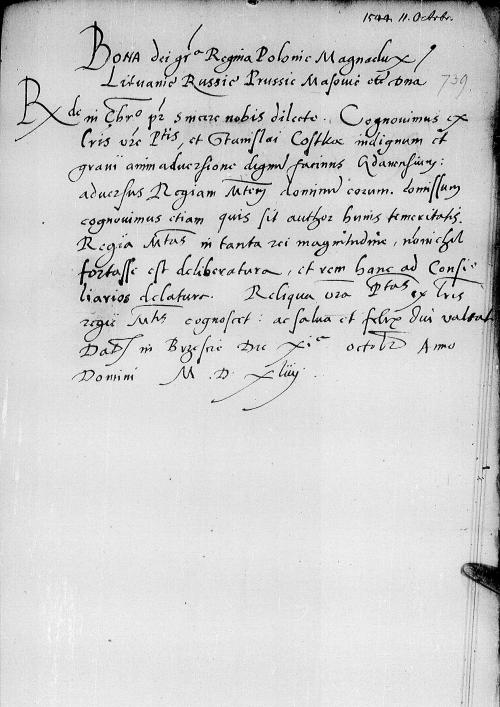 1544. 11. Octobr.
Bona dei gr̃a Regina Polonie Magnadux
Lituanie Russie Prussie Masouie etc dna
739.
Rx de in Chro pr smcere nobis dilecte. Cognouimus ex
lris vre Ptis, et Stanislai Costkae indignum et
graui animaduersione dignu facinus Gdanensium:
aduersus Regiam Mtem dominu eorum. comissum
cognouimus etiam quis sit author huius temeritatis.
Regia Mtas in tanta rei magnitudine, nonnihil
fortasse est deliberatura, et rem hanc ad Consi-
liarios delatura. Reliqua vra Ptas ex lris
regie Mtis cognoscet: ac salua et felix diu valeat.
Dat in Brzescie Die XIa octobr Anno
Domini M. D. Xliiij